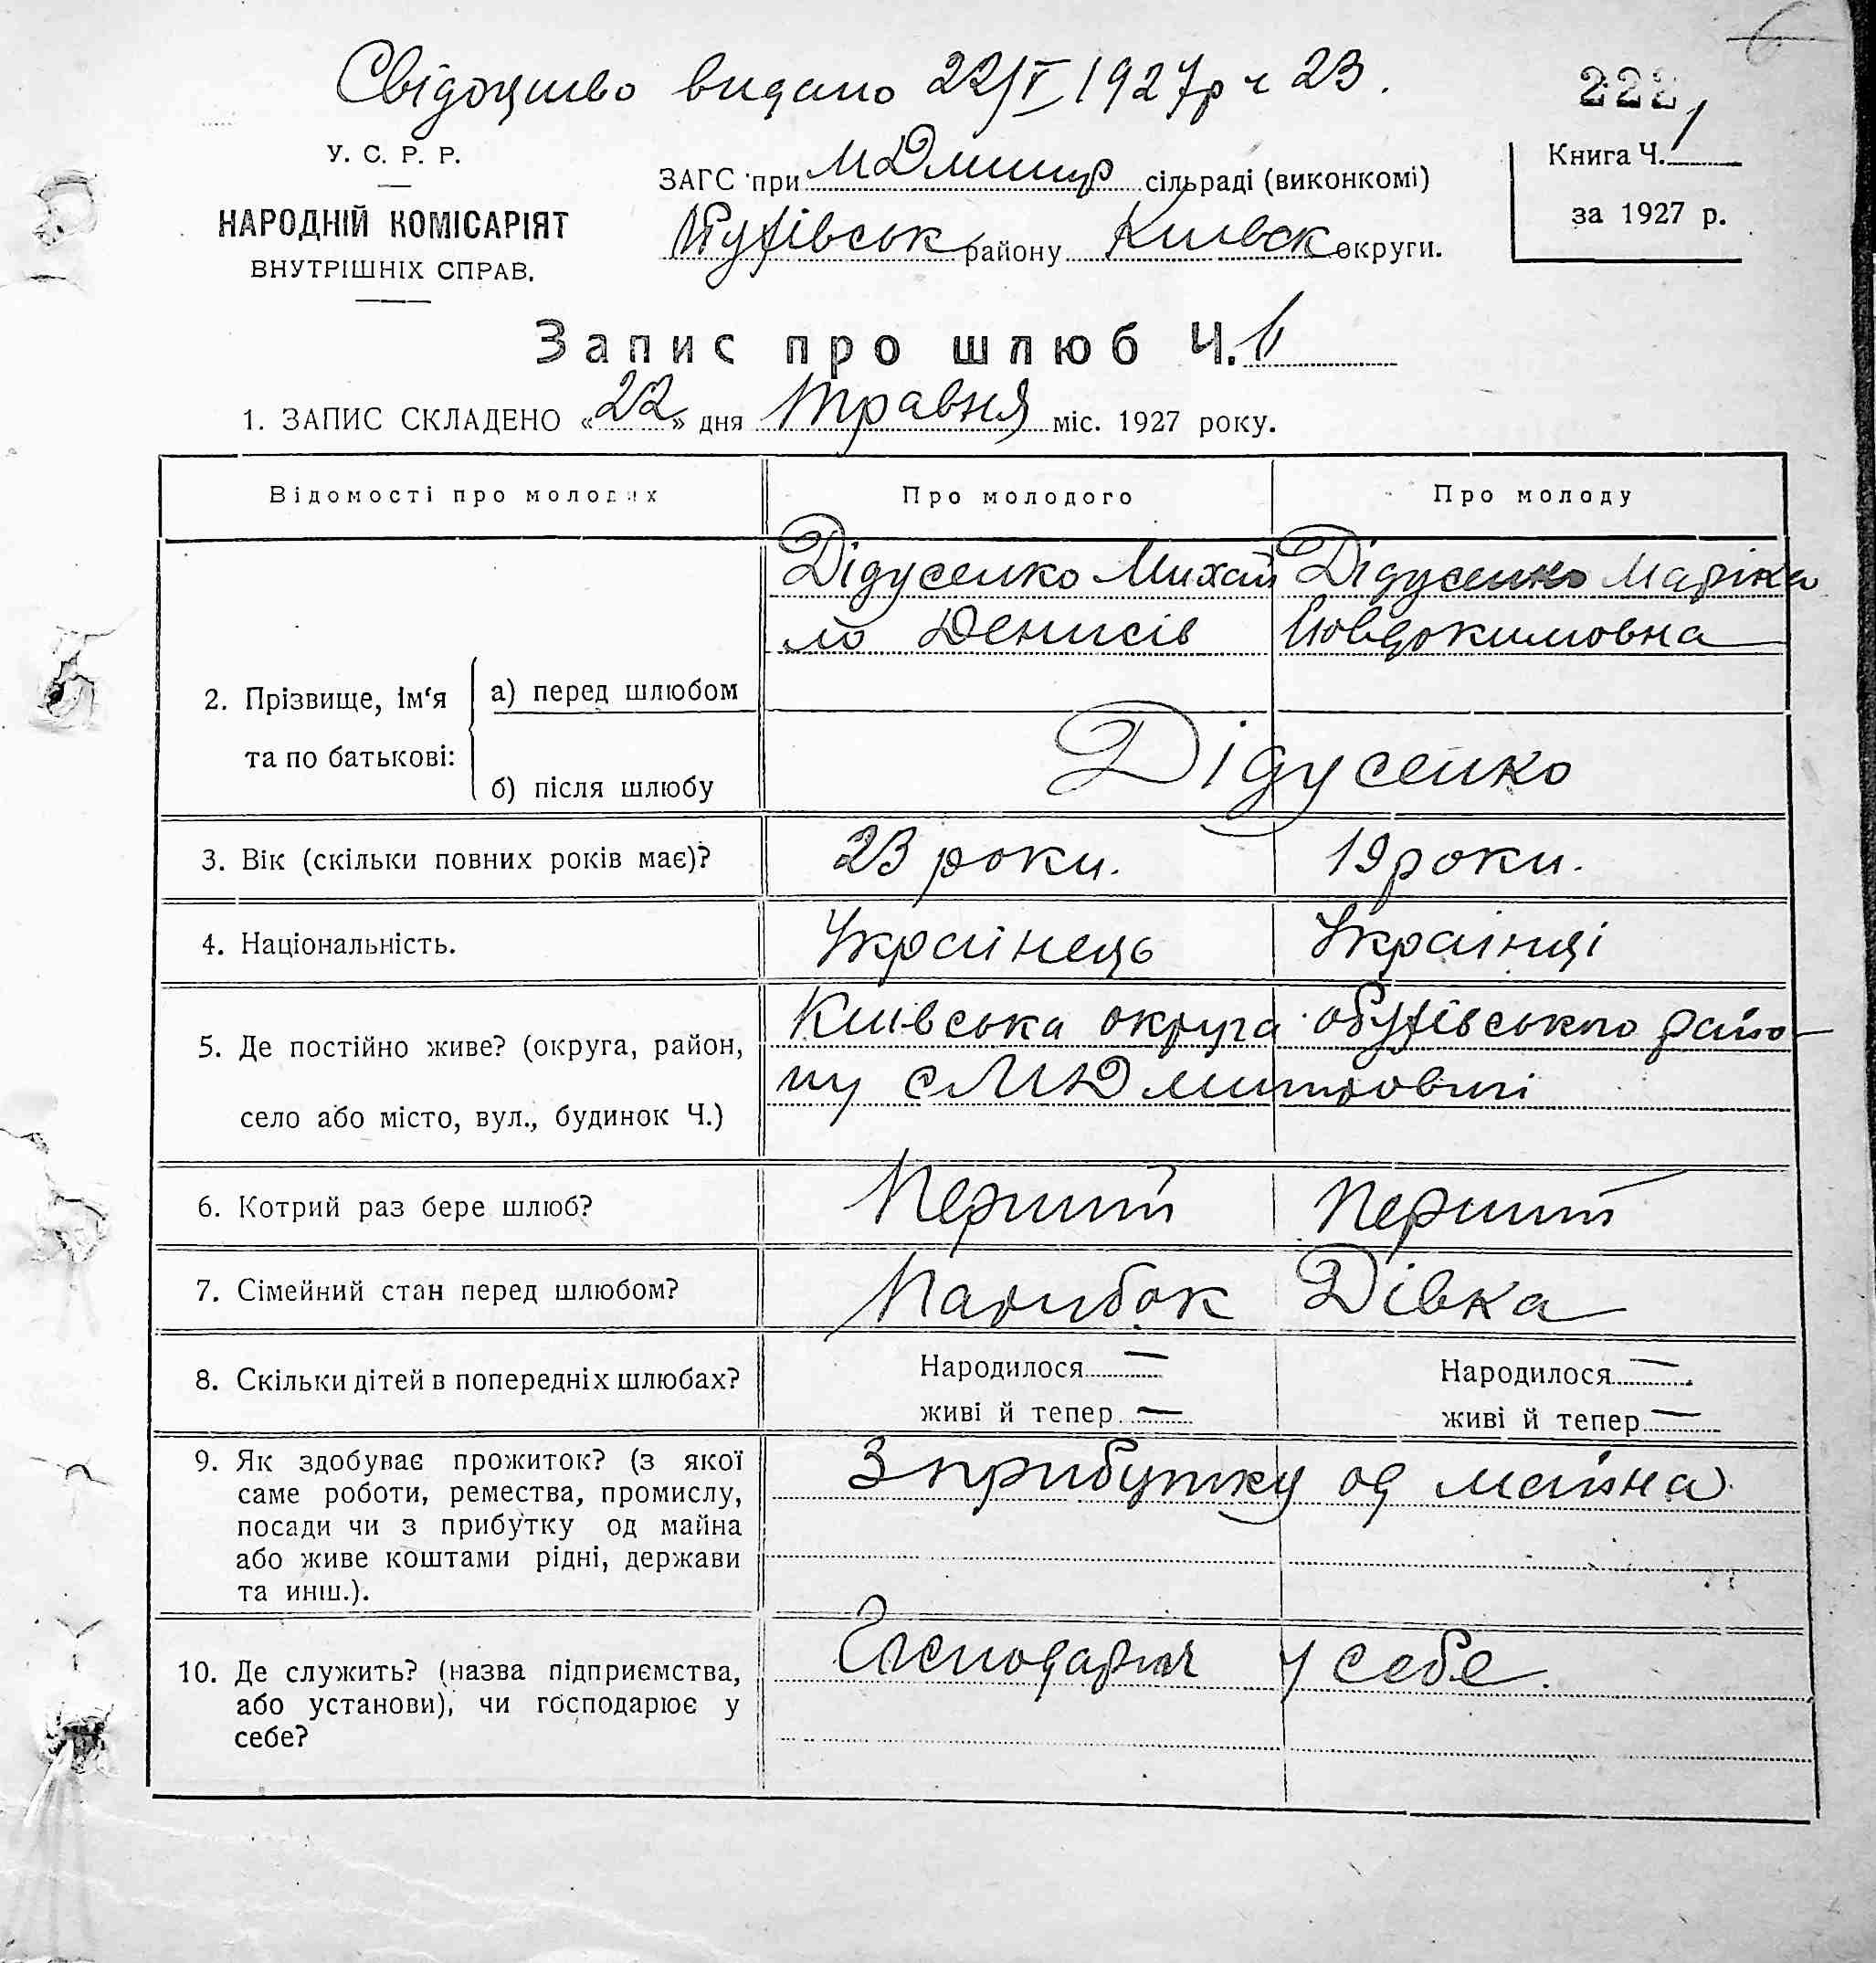 6
Свідоцтво видано 22/V 1927р ч 23.
222
У. С. Р. Р.
НАРОДНІЙ КОМІСАРІЯТ
ВНУТРІШНІХ СПРАВ.
ЗАГС при МДмитр сільраді (виконкомі)
Обухівськ району Київск округи.
Книга Ч. 1
за 1927 р.
Запис про шлюб Ч. 6
1. ЗАПИС СКЛАДЕНО «22» дня Травня міс. 1927 року.
Відомості про молодих
Про молодого
Про молоду
2. Прізвище, ім‘я та по батькові:
а) перед шлюбом
Дідусенко Михай
ло Денисів
Дідусенко Маріка
Йовдокимовна
б) після шлюбу
Дідусенко
3. Вік (скільки повних років має)?
23 роки.
19 роки.
4. Національність.
Українець
Українці
5. Де постійно живе? (округа, район,
село або місто, вул., будинок Ч.)
Київська округа обухівського райо-
ну с МДмитровичі
6. Котрий раз бере шлюб?
Перший
Перший
7. Сімейний стан перед шлюбом?
Парубок
Дівка
8. Скільки дітей в попередніх шлюбах?
Народилося —
живі й тепер —
Народилося —
живі й тепер —
9. Як здобуває прожиток? (з якої
саме роботи, ремества, промислу,
посади чи з прибутку од майна
або живе коштами рідні, держави
та инш.).
З прибутку од майна
10. Де служить? (назва підприємства,
або установи), чи господарює у
себе?
у себе.